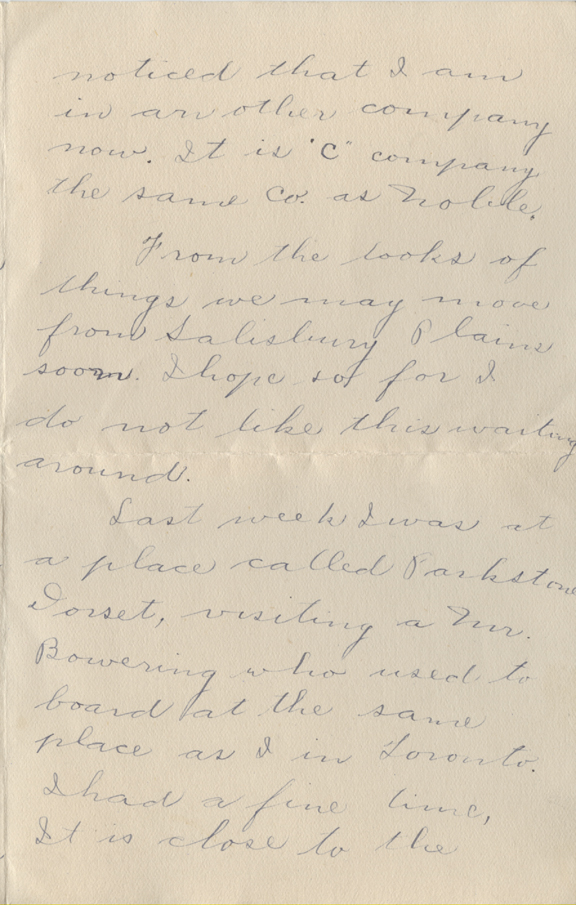 noticed that I am
in an other company
now. It is "C" company
the same Co. as Noble.
From the looks of
things we may move
from Salisbury Plains
soon. I hope so for I
do not like this waiting
around.
Last week I was at
a place called Parkstone
Dorset, visiting a Mr.
Bowering who used to
board at the same
place as I in Toronto.
I had a fine time,
It is close to the